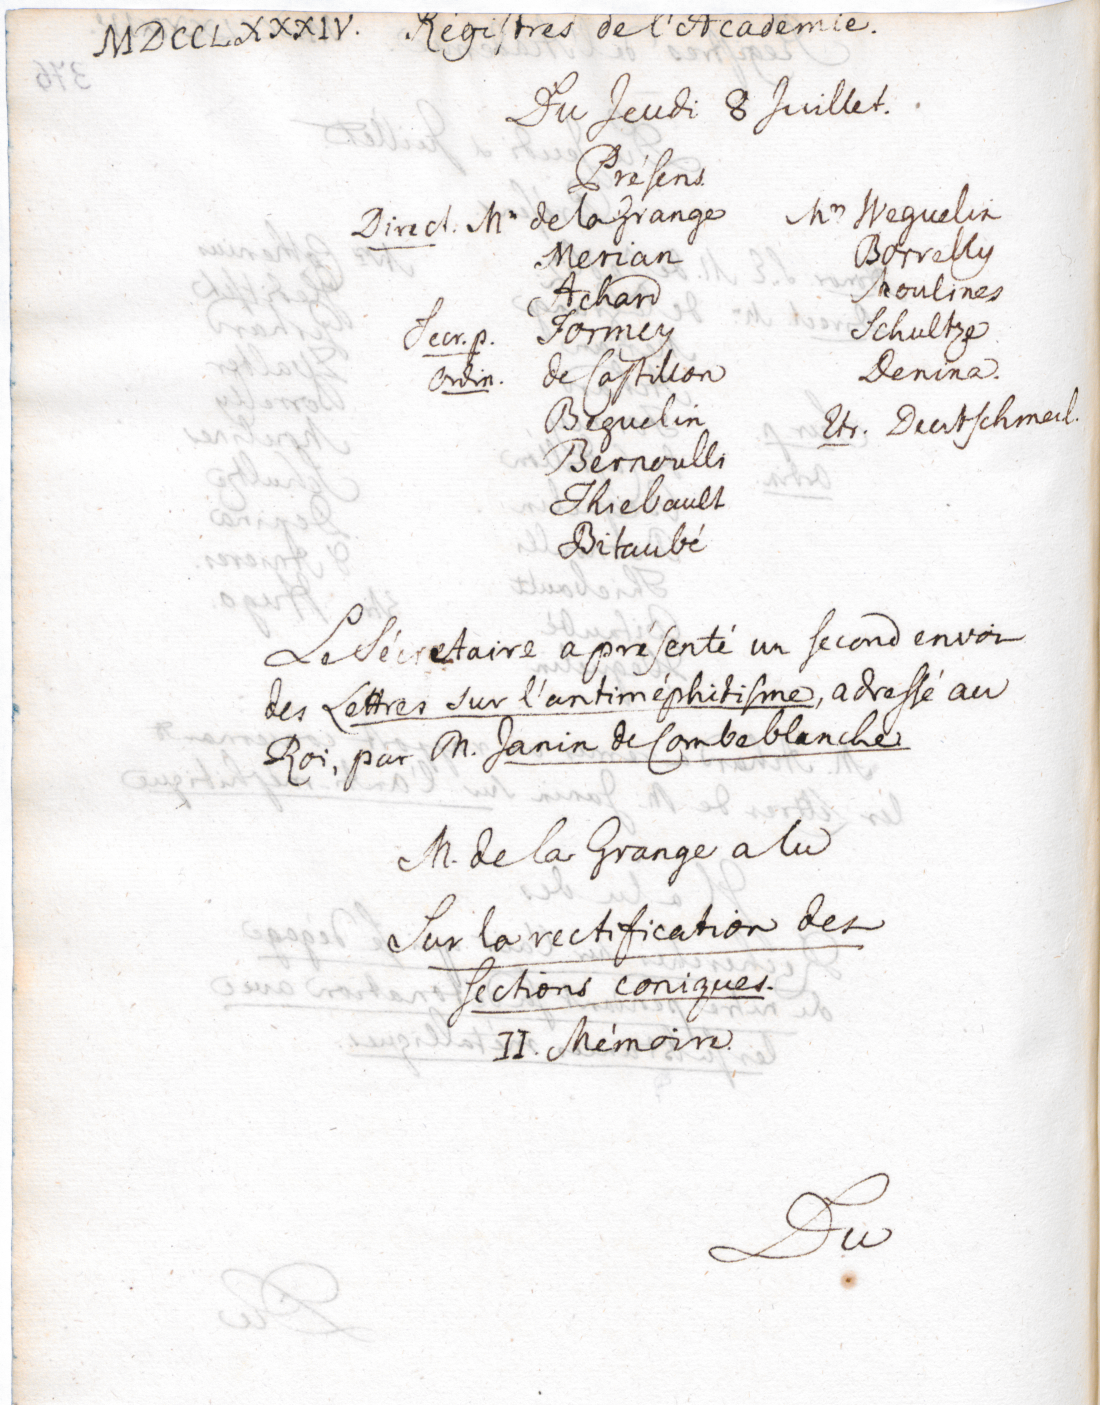 MDCCLXXXIV. Régistres de l'Académie.
Du Jeudi 8 Juillet.
Présens
Direct. Mrs de la Grange
Merian
Achard
Secr. p. Formey
Ordin. de Castillon
Beguelin
Bernoulli
Thiebault
Bitaubé
Mrs Weguelin
Borrelly
Moulines
Schultze
Denina.
Etr.
Le Sécretaire a présenté un second envoi
des Lettres sur l'antiméphitisme, adressé au
Roi, par M. Janin de Combeblanche.
M. de la Grange a lu
Sur la rectification des
sections coniques.
II. Mémoire.
Du